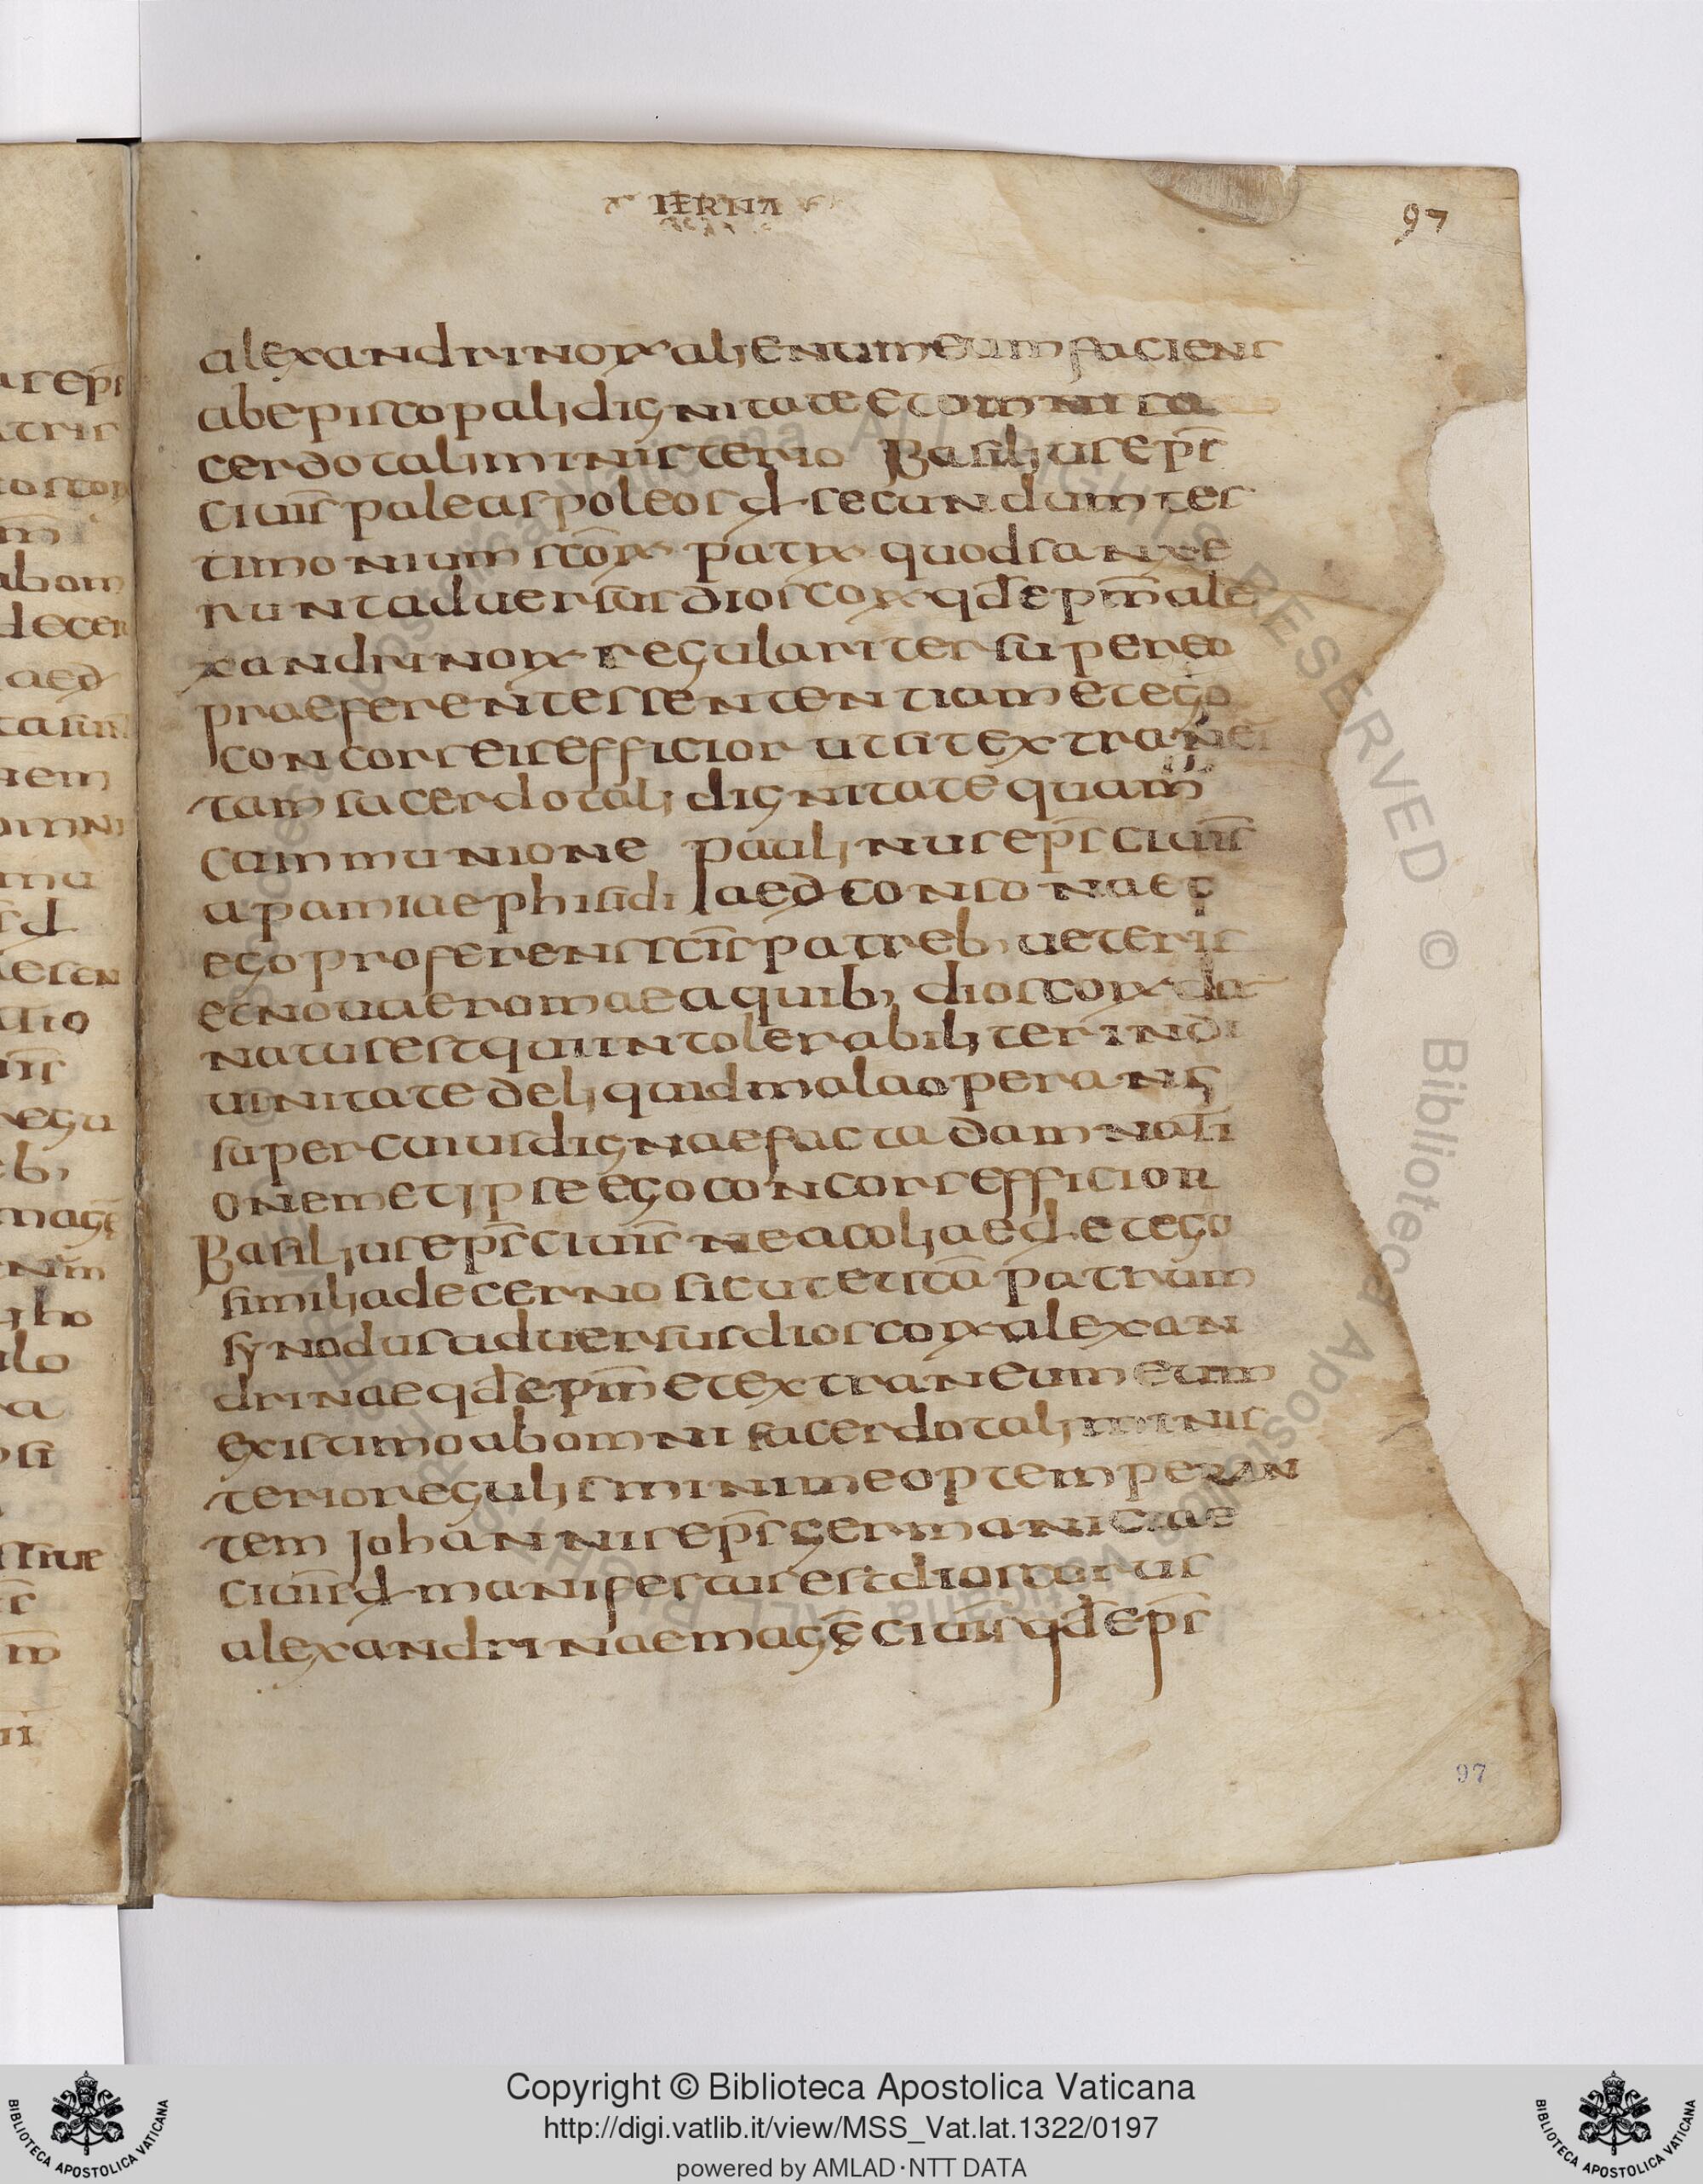 TERTIA
97
alexandrinorum alienum eum faciens
ab episcopali dignitate et omni sa
cerdotali ministerio Basilius ep̄s
ciuīs paleaspoleos đ secundum tes
timonium sc̄orum patrum quod sanxe
runt aduersus dioscorum qđ ep̄m ale
xandrinorum regulariter super eo
praeferentes sententiam et ego
concors eis efficior ut sit extranei
tam sacerdotali dignitate quam
cammunione paulinus ep̄s ciuīs
apamiae phisidi aeđ consona et
ego proferens sc̄is patreb; ueteris
et nouae romae a quib; dioscorum da
natus est qui intolerabiliter in di
uinitate deliquid mala operans
super cuius digna e facta damnati
onem et ipse ego concors efficior
Basilius ep̄s ciuīs neacoliaeđ et ego
similia decerno sicut et sc̄a patrum
synodus aduersus dioscorum alexan
drinae qđ ep̄m et extraneum eum
existimo ab omni sacerdotali minis
terio regulis minime optemperan
tem Johannis ep̄s germaniciae
ciuīs đ manifestus est dioscorus
alexandrinae magē ciuīs qđ ep̄s
97
Copyright © Biblioteca Apostolica Vaticana
http://digi.vatlib.it/view/MSS_Vat.lat.1322/0197
powered by AMLAD·NTT DATA
BIBLIOTECA APOSTOLICA VATICANA
BIBLIOTECA APOSTOLICA VATICANA